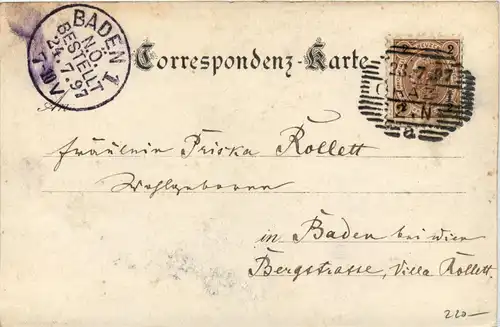 BADEN 1
N.Ö.
BESTELLT
24.7.97
7-10V
Correspondenz-Karte
2 2
23.7.97
GRAZ 1
2.N
a
An
Fräulein Priska Rollett
Wohlgeboren
in Baden bei Wien
Bergstrasse, Villa Rollett.
220—